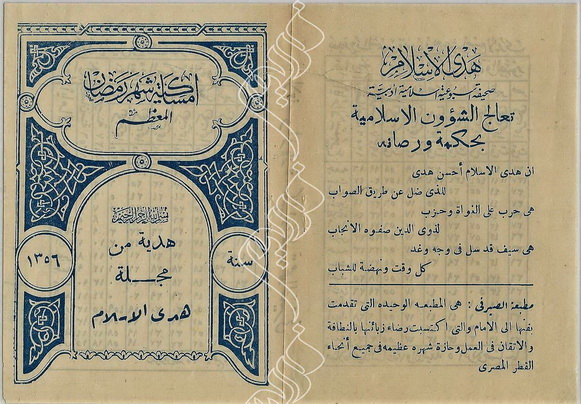 هدى الاسلام
صحيفة اسبوعية اسلامية ادبية
تعالج الشؤون الاسلامية
بحكمة ورصانه
ان هدى الاسلام أحسن هدى
للذى ضل عن طريق الصواب
هى حرب على الغواة وحزب
لذوى الدين صفوه الانجاب
هى سيف قد سل فى وجه وغد
كل وقت ونهضة للشباب
مطبعة الصيرفى : هى المطبعه الوحيده التى تقدمت
بفنها الى الامام والتى اكتسبت رضاء زبائنها بالنظافة
والاتقان فى العمل وحازة شهره عظيمه فى جميع أنحاء
القطر المصرى
امساكية شهر رمضان
المعظم
بسم الله الرحمن الرحيم
هدية من
مجلة
هدى الاسلام
سنة
١٣٥٦